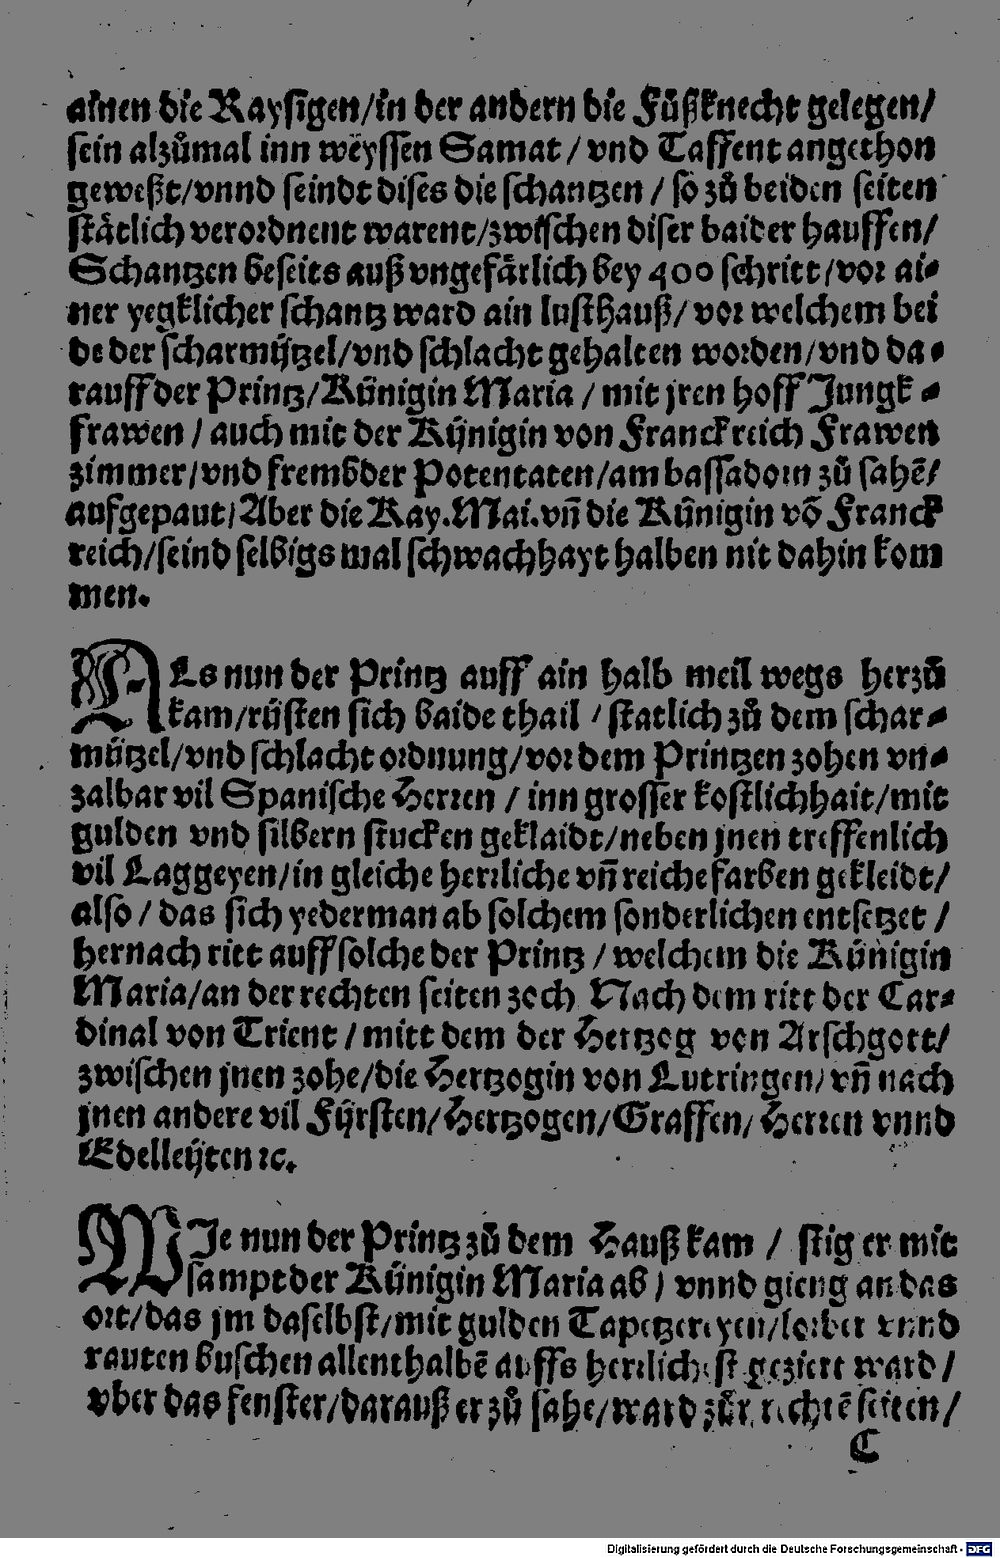 ainen die Raysigen/in der andern die Fůßknecht gelegen/
sein alzůmal inn weyssen Samat / vnd Taffent angethon
geweßt/vnnd seindt dises die schantzen / so zů beiden seiten
stätlich verordnent warent/zwischen diser baider hauffen/
Schantzen beseits auß vngefärlich bey 400 schritt/vor ai⸗
ner yegklicher schantz ward ain lusthauß/ vor welchem bei
de der scharmützel/vnd schlacht gehalten worden/vnd da⸗
rauff der Printz/Künigin Maria / mit jren hoff Jungk⸗
frawen / auch mit der Künigin von Franckreich Frawen
zimmer/vnd frembder Potentaten/ambassadorn zů sahē/
aufgepaut/Aber die Kay.Mai.vn̄ die Künigin vō Franck
reich/seind selbigs mal schwachhayt halben nit dahin kom
men.
ALs nun der Printz auff ain halb meil wegs herzů
kam/rüsten sich baide thail / statlich zů dem schar⸗
mützel/vnd schlacht ordnung/vor dem Printzen zohen vn⸗
zalbar vil Spanische Herren / inn grosser kostlichhait/mit
gulden vnd silbern stucken geklaidt/neben jnen treffenlich
vil Laggeyen/in gleiche herrliche vn̄ reiche farben gekleidt/
also / das sich yederman ab solchem sonderlichen entsetzet /
hernach ritt auff solche der Printz / welchem die Künigin
Maria/an der rechten seiten zoch Nach dem ritt der Car⸗
dinal von Trient / mitt dem der Hertzog von Arschgott/
zwischen jnen zohe/die Hertzogin von Lutringen/ vn̄ nach
jnen andere vil Fürsten/Hertzogen/Graffen/ Herren vnnd
Edelleüten ꝛc.
WIe nun der Printz zů dem Hauß kam / stig er mit
sampt der Künigin Maria ab / vnnd gieng an das
ort/das jm daselbst/mit gulden Tapetzereyen/lorber vnnd
rauten buschen allenthalbē auffs herrlichist geziert ward /
vber das fenster/darauß er zů sahe/ward zůr rechtē seiten/
C
Digitalisierung gefördert durch die Deutsche Forschungsgemeinschaft - DFG